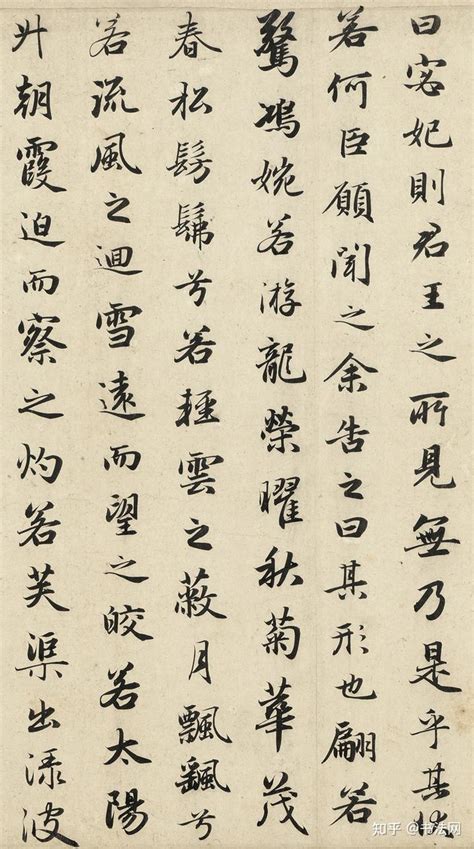 曰宓妃則君王之所見無乃是乎其狀
若何臣願聞之余告之曰其形也翩若
驚鴻婉若游龍榮曜秋菊華茂
春松髣髴兮若輕雲之蔽月飄飄兮
若流風之迴雪遠而望之皎若太陽
升朝霞迫而察之灼若芙渠出淥波
知乎 @书法网